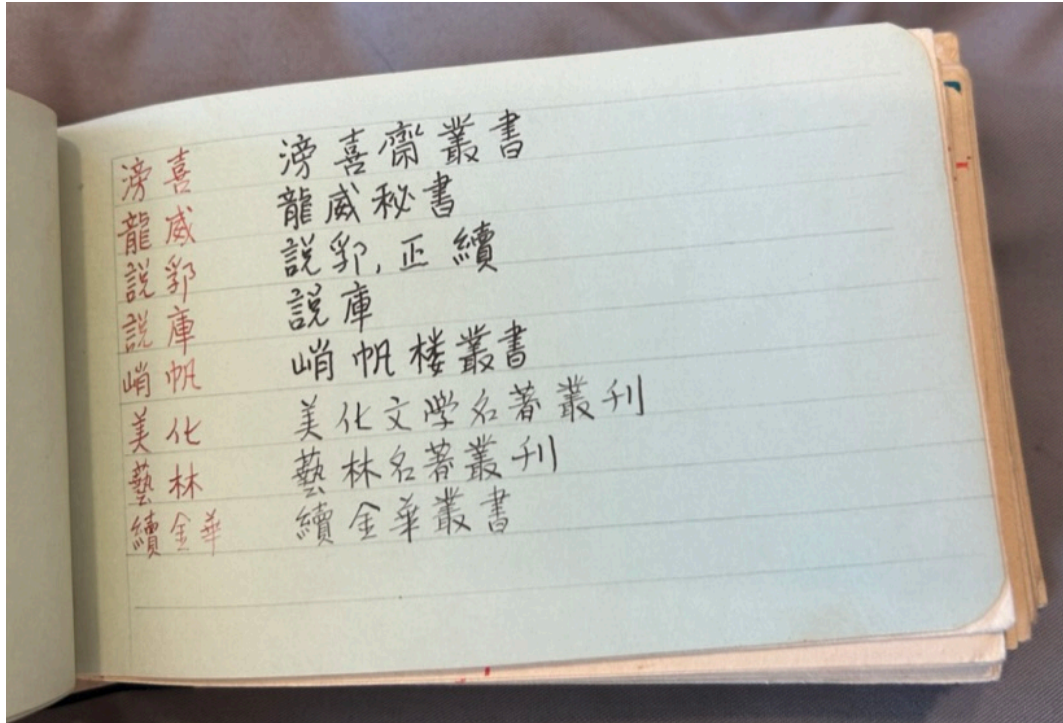 滂喜 滂喜齋叢書
龍威 龍威秘書
説郛 説郛,正續
説庫 説庫
峭帆 峭帆楼叢書
美化 美化文学名著叢刊
藝林 藝林名著叢刊
續金華 續金華叢書